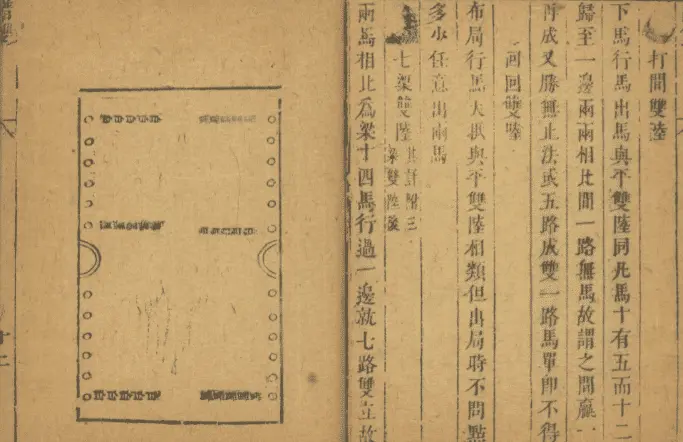 打間雙陸
下馬行馬出馬與平雙陸同凡馬十有五而十二
歸至一邊兩兩相比間一路無馬故謂之間贏一
再成又勝無止法或五路成雙一路馬單即不得
回回雙陸
布局行馬大抵與平雙陸相類但出局時不問點
多少任意出兩馬
七梁雙陸 其討附三
梁雙陸後
兩馬相比為梁十四馬行過一邊就七路雙立故
十二